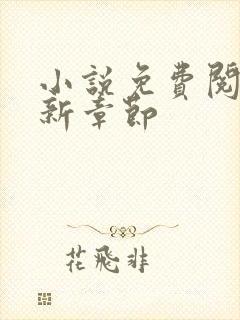 小說免費閱
新章節
花飛非